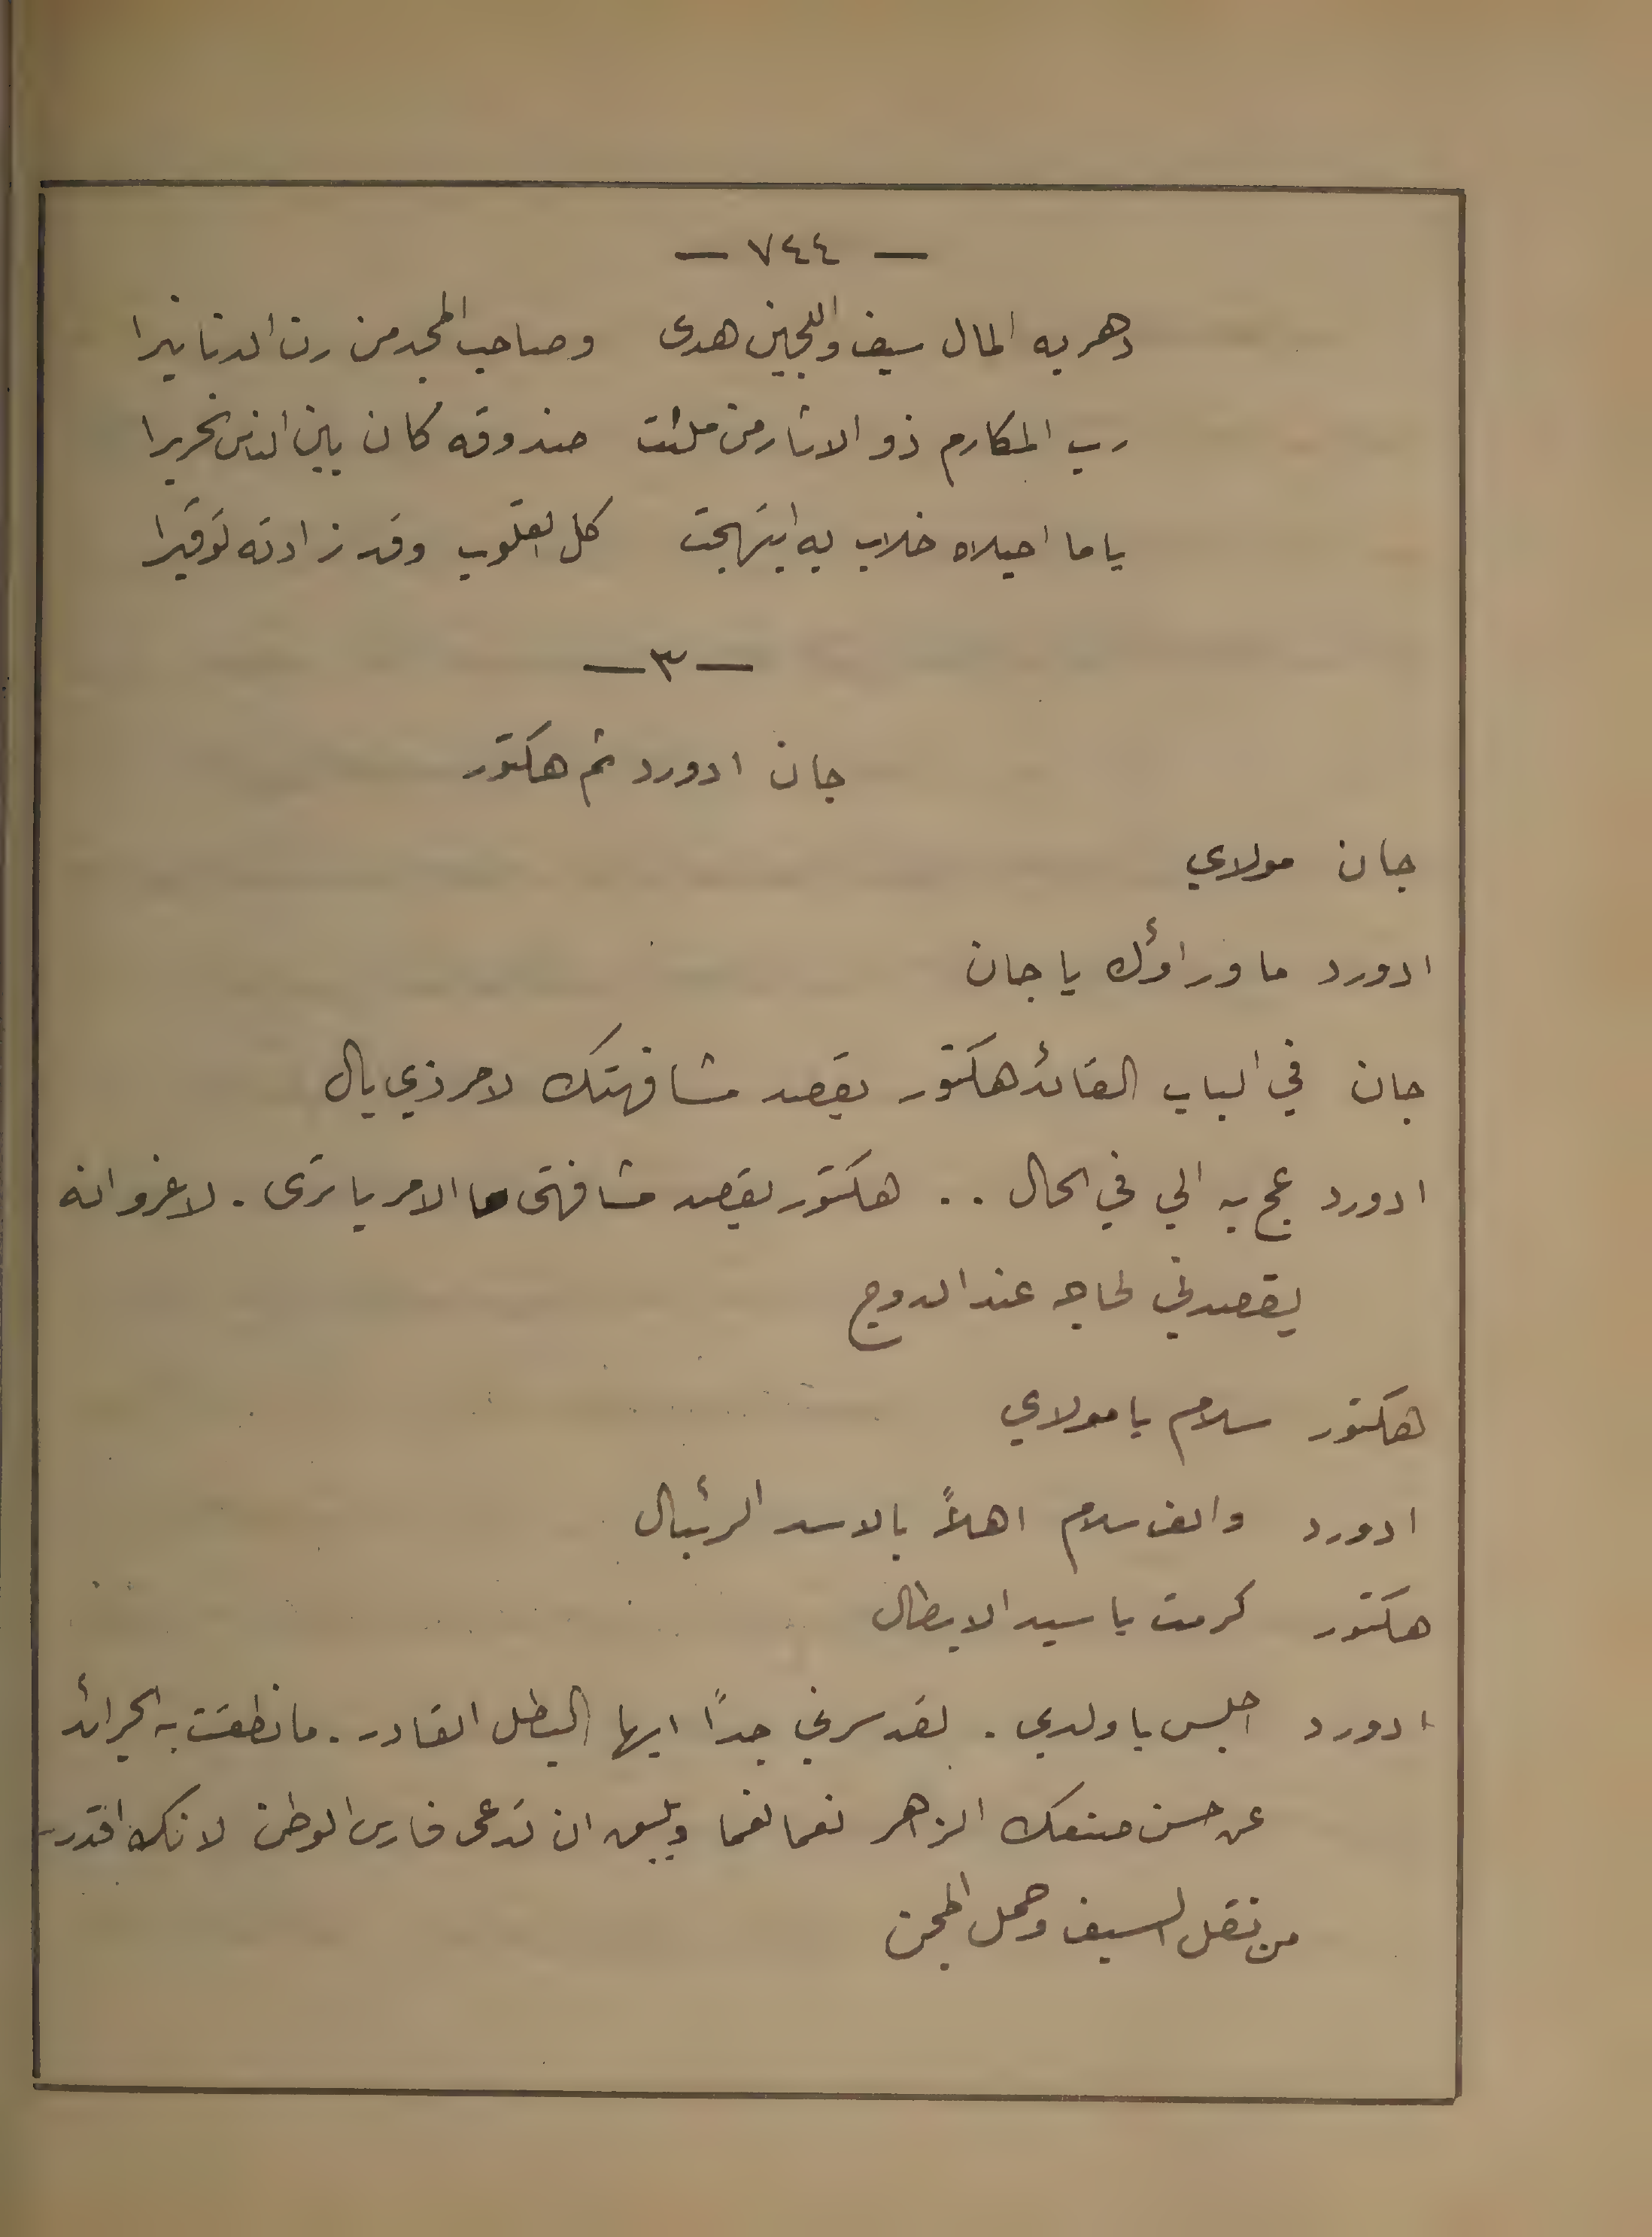 — ٧٤٤ —
دهر به المال سيف واللجين هدى وصاحب المجد من رن الدنانيرا
رب المكارم ذو الاثار من ملئت صندوقه كان بين الناس نحريرا
ياما احيلاه خلاب به ابتهجت كل القلوب وقد زادته توقيرا
— ٣ —
جان ادورد ثم هكتور
جان مولاي
ادورد ما وراؤك يا جان
جان في الباب القائد هكتور يقصد مشافهتك لامر ذي بال
ادورد عج به الي في الحال . . هكتور يقصد مشافهتى ما الامر يا ترى . لا غرو انه
يقصدني لحاجه عند الدوج
هكتور سلام يا مولاي
ادورد والف سلام اهلاً بالاسد الرئبال
هكتور كرمت يا سيد الابطال
ادورد اجلس يا ولدي . لقد سرني جداً ايها البطل القادر . ما نطقت به الجرائد
عن حسن صنعك الزهر نعما نعما ويليق ان تدعى فارس الوطن لانك اقدر
من نقل السيف وحمل المجن